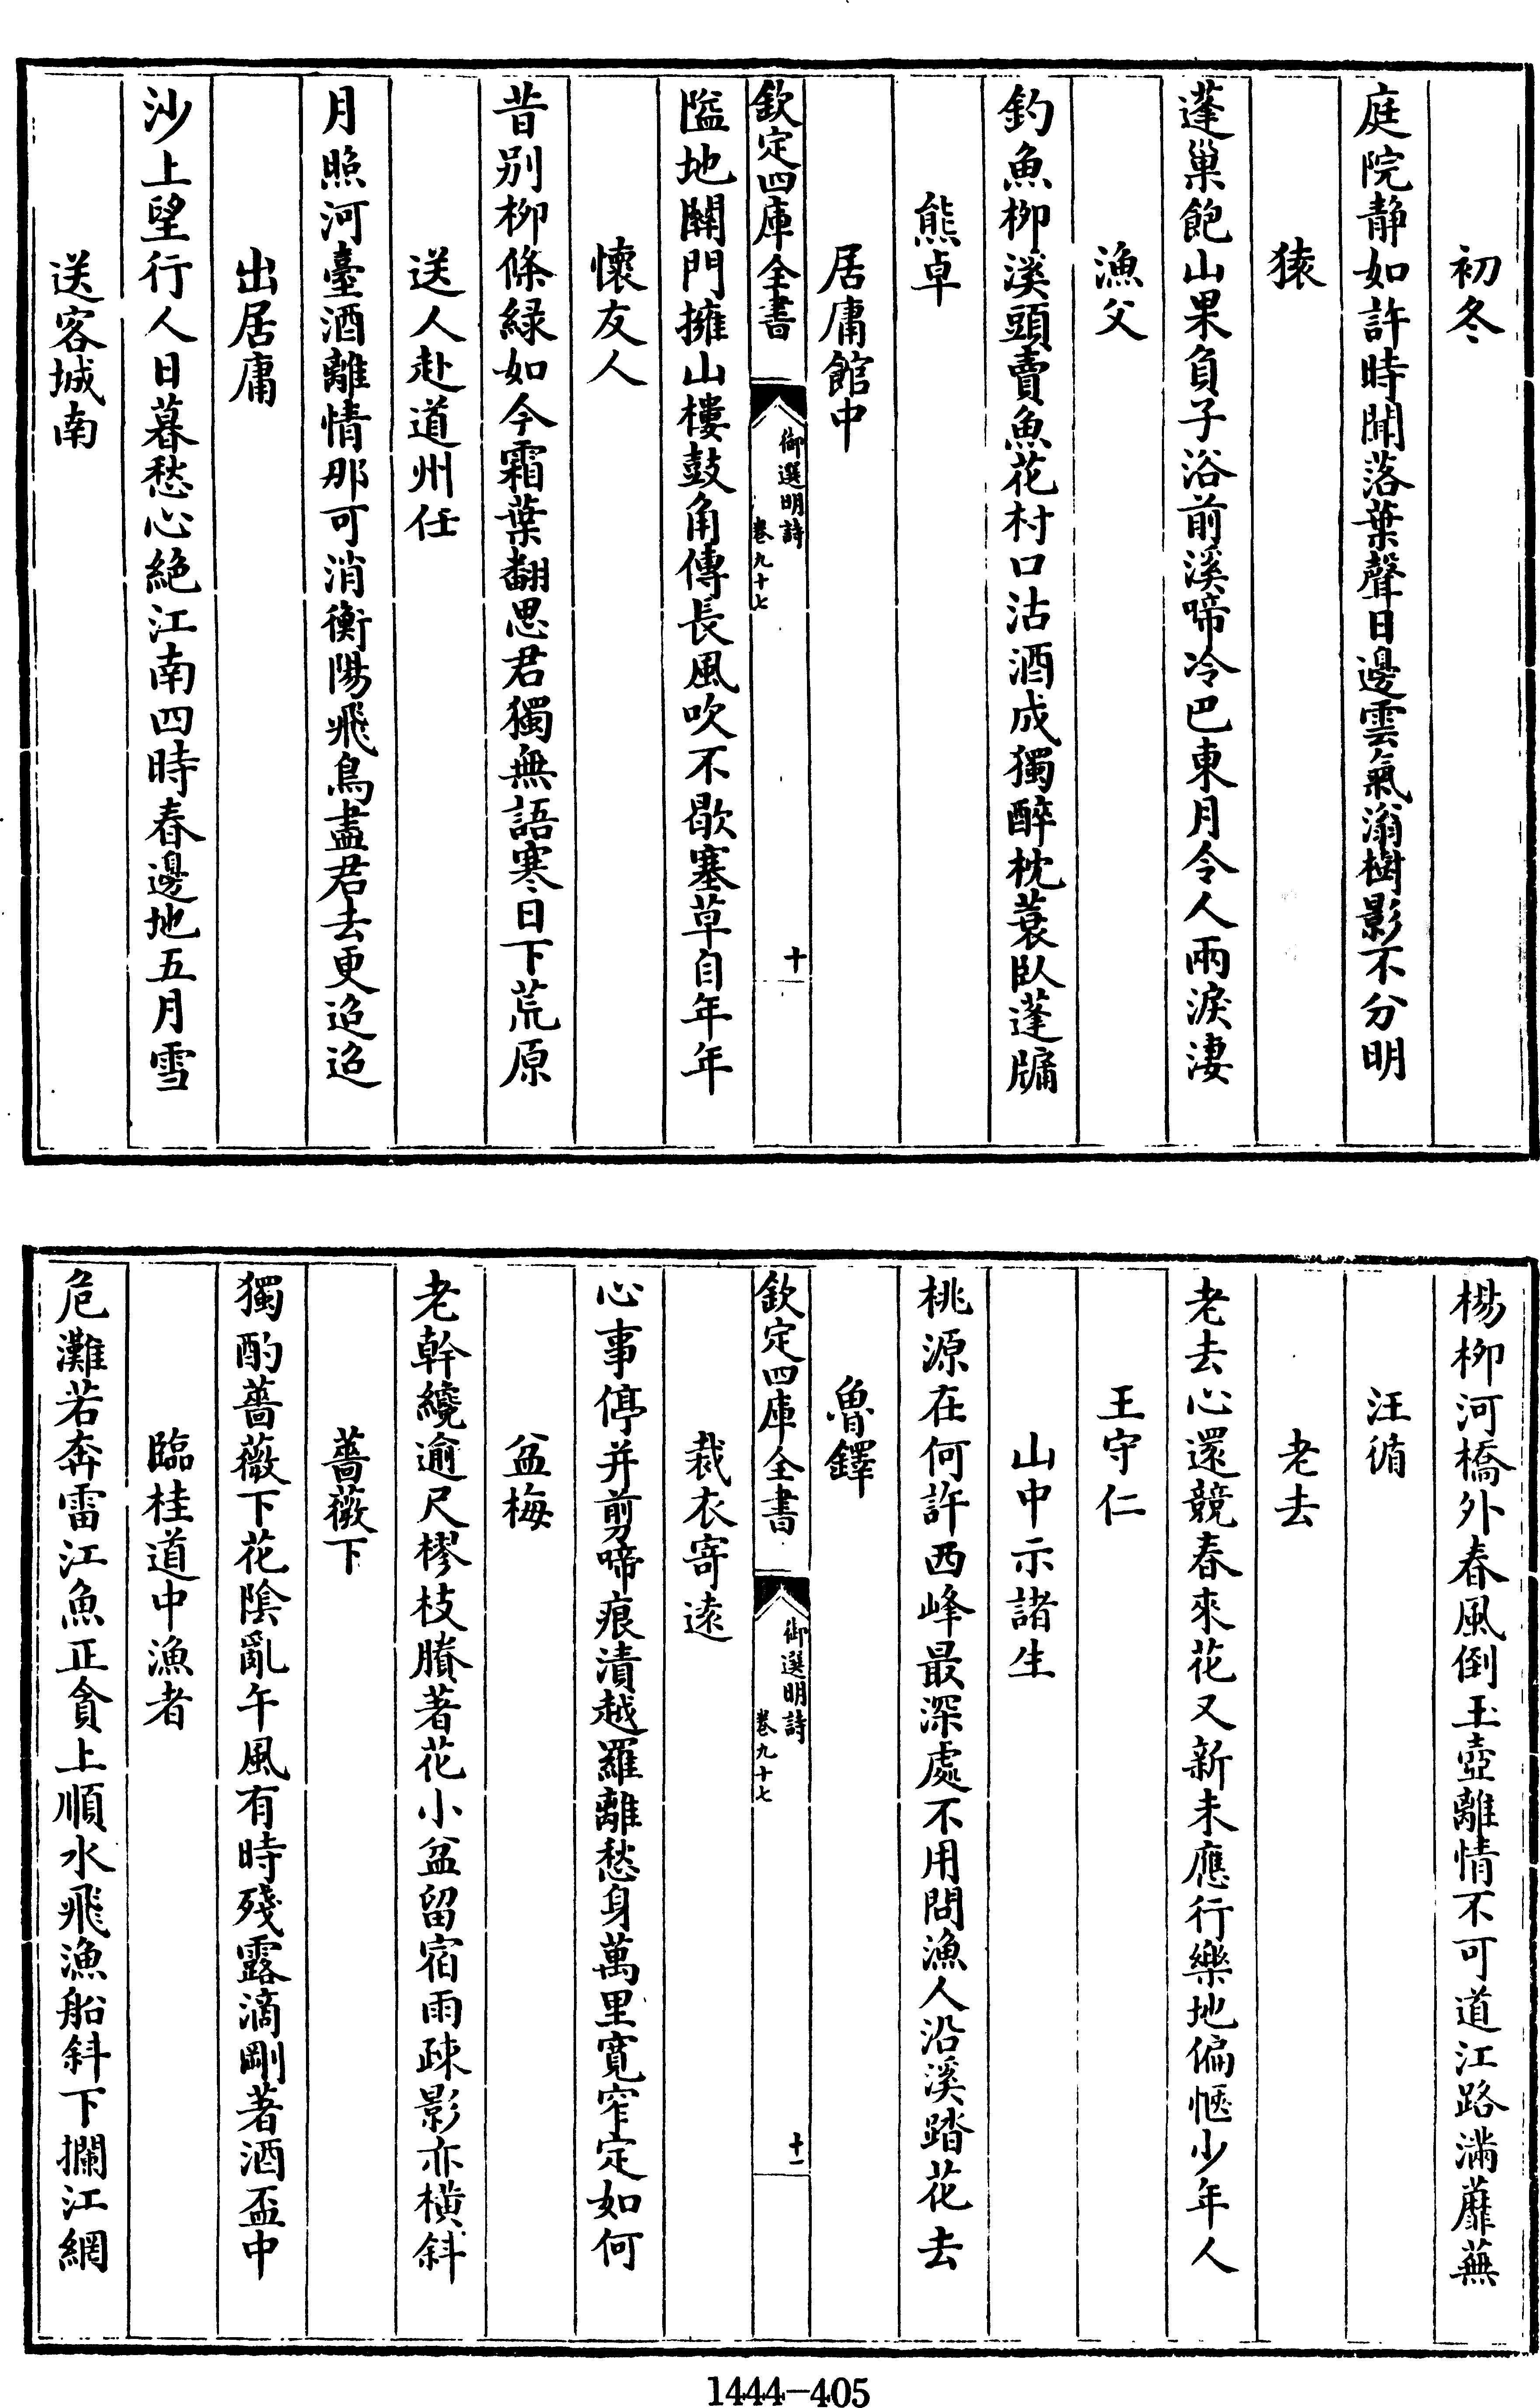 初冬
庭院静如許時聞落葉聲日邊雲氣滃樹影不分明
猿
蓬巢飽山果負子浴前溪啼冷巴東月令人兩淚淒
漁父
釣魚柳溪頭賣魚花村口沽酒成獨醉枕蓑臥蓬牗
熊卓
居庸館中
欽定四庫全書
御選明詩
卷九十七
十
隘地關門擁山樓鼓角傳長風吹不歇塞草自年年
懷友人
昔别柳條緑如今霜葉翻思君獨無語寒日下荒原
送人赴道州任
月照河臺酒離情那可消衡陽飛鳥盡君去更迢迢
出居庸
沙上望行人日暮愁心絶江南四時春邊地五月雪
送客城南
楊柳河橋外春風倒玉壺離情不可道江路滿蘼蕪
汪循
老去
老去心還競春來花又新未應行樂地偏愜少年人
王守仁
山中示諸生
桃源在何許西峰最深處不用問漁人沿溪踏花去
魯鐸
欽定四庫全書
御選明詩
卷九十七
十一
裁衣寄逺
心事停并剪啼痕漬越羅離愁身萬里寛窄定如何
盆梅
老幹纔逾尺樛枝賸著花小盆留宿雨疎影亦橫斜
薔薇下
獨酌薔薇下花陰亂午風有時殘露滴剛著酒盃中
臨桂道中漁者
危灘若奔雷江魚正貪上順水飛漁船斜下攔江網
1444-405